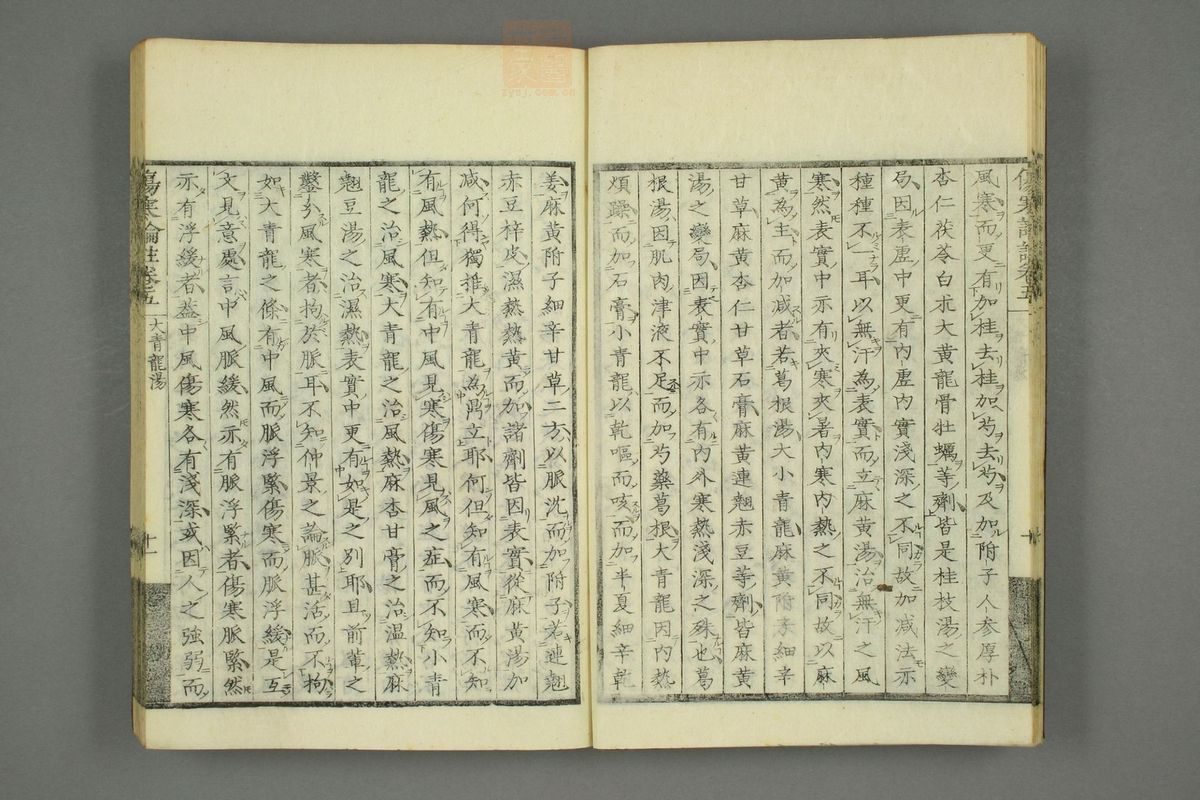 傷寒論註卷五
十
風寒而更有加桂去桂加芍去芍及加附子人参厚朴
杏仁茯苓白朮大黃龍骨牡蠣等劑皆是桂枝湯之變
局因表虛中更有内虛内實淺深之不同故加减法亦
種種不一耳以無汗為表實而立麻黄湯治無汗之風
寒然表實中亦有夾寒夾暑内寒内熱之不同故以麻
黄為主而加减者若葛根湯大小青龍麻黄附子細辛
甘草麻黄杏仁甘草石膏麻黄連翹赤豆等劑皆麻黄
湯之變局因表實中亦各有内外寒熱淺深之殊也葛
根湯因肌肉津液不足而加芍藥葛根大青龍因内熱
煩躁而加石膏小青龍以乾嘔而咳而加半夏細辛乾
姜麻黄附子細辛甘草二方以脈沈而加附子若連翹
赤豆梓皮濕熱熱黄而加諸劑皆因表實從麻黄湯加
减何得獨推大青龍為鼎立耶何但知有風寒而不知
有風熱但知有中風見寒傷寒見風之症而不知小青
龍之治風寒大青龍之治風熱麻杏甘膏之治温熱麻
翹豆湯之治濕熱表實中更有如是之别耶且前輩之
鑿分風寒者拘於脈耳不知仲景之論脈甚活而不拘
如大青龍之條有中風而脈浮緊傷寒而脈浮緩是互
文見意處言中風脈緩然亦有脈浮緊者傷寒脈緊然
亦有浮緩者蓋中風傷寒各有淺深或因人之強弱而
傷寒論註卷五
大青龍湯
十一